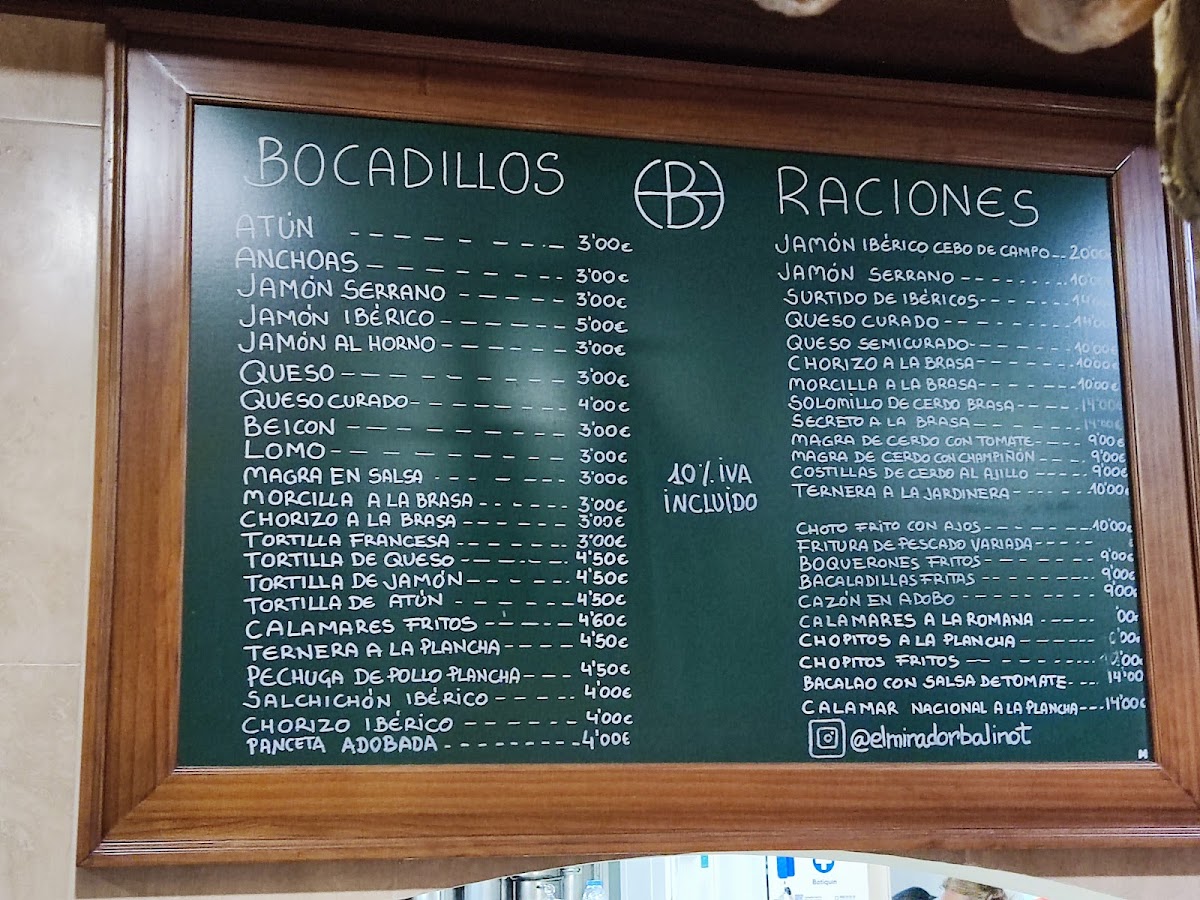 BOCADILLOS
ATÚN --- 3'00€
ANCHOAS --- 3'00€
JAMÓN SERRANO --- 3'00€
JAMÓN IBÉRICO --- 5'00€
JAMÓN AL HORNO --- 3'00€
QUESO --- 3'00€
QUESO CURADO --- 4'00€
BEICON --- 3'00€
LOMO --- 3'00€
MAGRA EN SALSA --- 3'00€
MORCILLA A LA BRASA --- 3'00€
CHORIZO A LA BRASA --- 3'00€
TORTILLA FRANCESA --- 3'00€
TORTILLA DE QUESO --- 4'50€
TORTILLA DE JAMÓN --- 4'50€
TORTILLA DE ATÚN --- 4'50€
CALAMARES FRITOS --- 4'60€
TERNERA A LA PLANCHA --- 4'50€
PECHUGA DE POLLO PLANCHA --- 4'50€
SALCHICHÓN IBÉRICO --- 4'00€
CHORIZO IBÉRICO --- 4'00€
PANCETA ADOBADA --- 4'00€
B
10% IVA
INCLUÍDO
RACIONES
JAMÓN IBÉRICO CEBO DE CAMPO -- 20'00
JAMÓN SERRANO --- 10'00
SURTIDO DE IBÉRICOS --- 14'00
QUESO CURADO --- 14'00
QUESO SEMICURADO --- 10'00
CHORIZO A LA BRASA --- 10'00€
MORCILLA A LA BRASA --- 10'00€
SOLOMILLO DE CERDO BRASA --- 14'00€
SECRETO A LA BRASA --- 14'00€
MAGRA DE CERDO CON TOMATE --- 9'00€
MAGRA DE CERDO CON CHAMPIÑÓN --- 9'00€
COSTILLAS DE CERDO AL AJILLO --- 9'00€
TERNERA A LA JARDINERA --- 10'00€
CHOTO FRITO CON AJOS --- 10'00€
FRITURA DE PESCADO VARIADA ---
BOQUERONES FRITOS --- 9'00€
BACALADILLAS FRITAS --- 9'00€
CAZÓN EN ADOBO --- 9'00€
CALAMARES A LA ROMANA --- '00€
CHOPITOS A LA PLANCHA --- '00€
CHOPITOS FRITOS --- '00€
BACALAO CON SALSA DE TOMATE --- 14'00
CALAMAR NACIONAL A LA PLANCHA --- 14'00€
@elmiradorbalinot
Botiquín